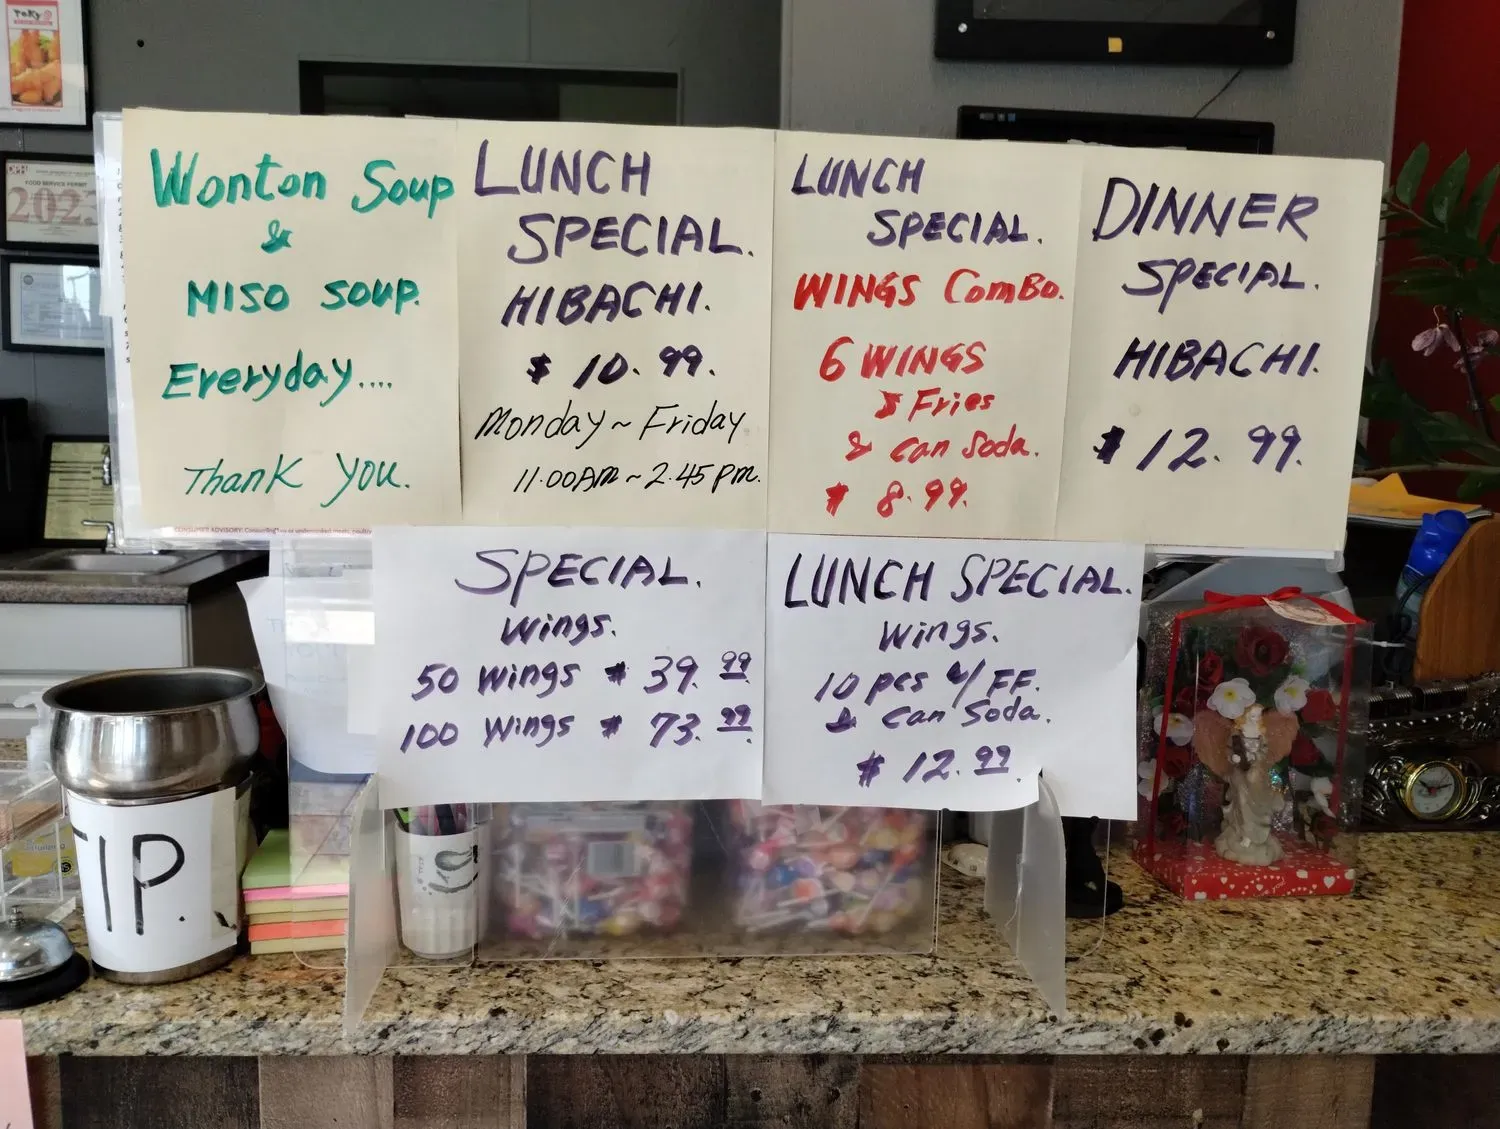 Wonton Soup
&
MISO SOUP.
Everyday....
Thank You.
LUNCH
SPECIAL.
HIBACHI.
$ 10.99.
Monday ~ Friday
11.00AM ~ 2.45 pm.
LUNCH
SPECIAL.
WINGS ComBo.
6 WINGS
Fries
& can Soda.
$ 8.99.
DINNER
SPECIAL.
HIBACHI.
$ 12.99.
SPECIAL.
Wings.
50 Wings $ 39.99
100 Wings $ 73.99
LUNCH SPECIAL.
Wings.
10 pcs w/ FF.
& can Soda.
$ 12.99
TIP.
FOOD SERVICE PERMIT
2023
CONSUMER ADVISORY: